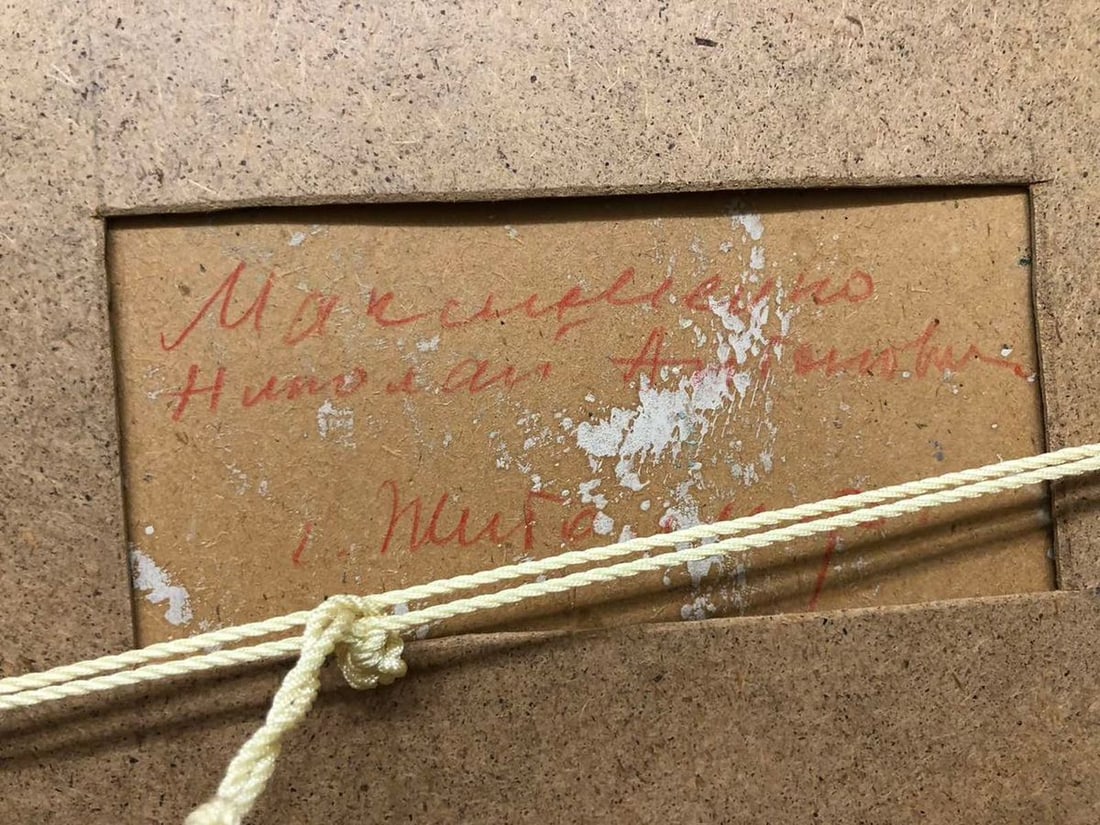 Максименко
Николай Антонович
г. Житомир